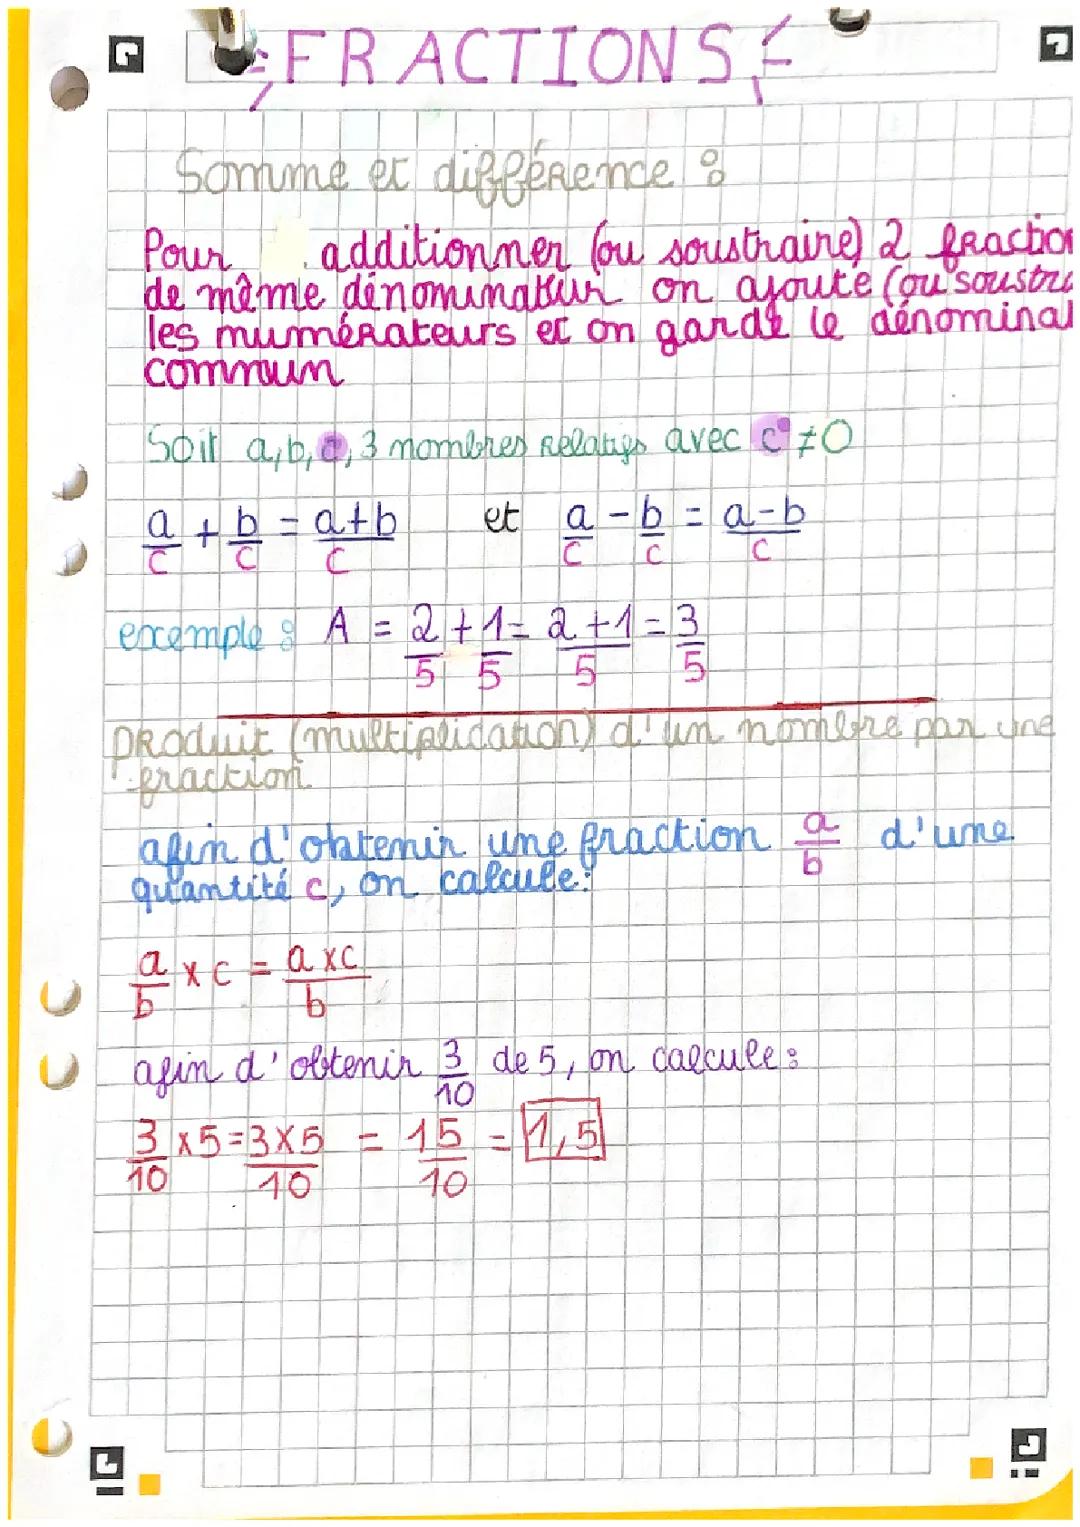 FRACTIONS
Somme et différence :
Pour additionner (ou soustraire) 2 fraction
de même dénominateur on ajoute (ou soustra
les numérateurs et on garde le dénominat
commun
Soit a, b, c, 3 nombres relatifs avec c ≠ 0
a/c + b/c = a+b/c et a/c - b/c = a-b/c
exemple : A = 2/5 + 1/5 = 2+1/5 = 3/5
produit (multiplication) d'un nombre par une
fraction
afin d'obtenir une fraction a/b d'une
quantité c, on calcule :
a/b × c = a×c/b
afin d'obtenir 3/10 de 5, on calcule :
3/10 ×5 = 3×5/10 = 15/10 = 1,5